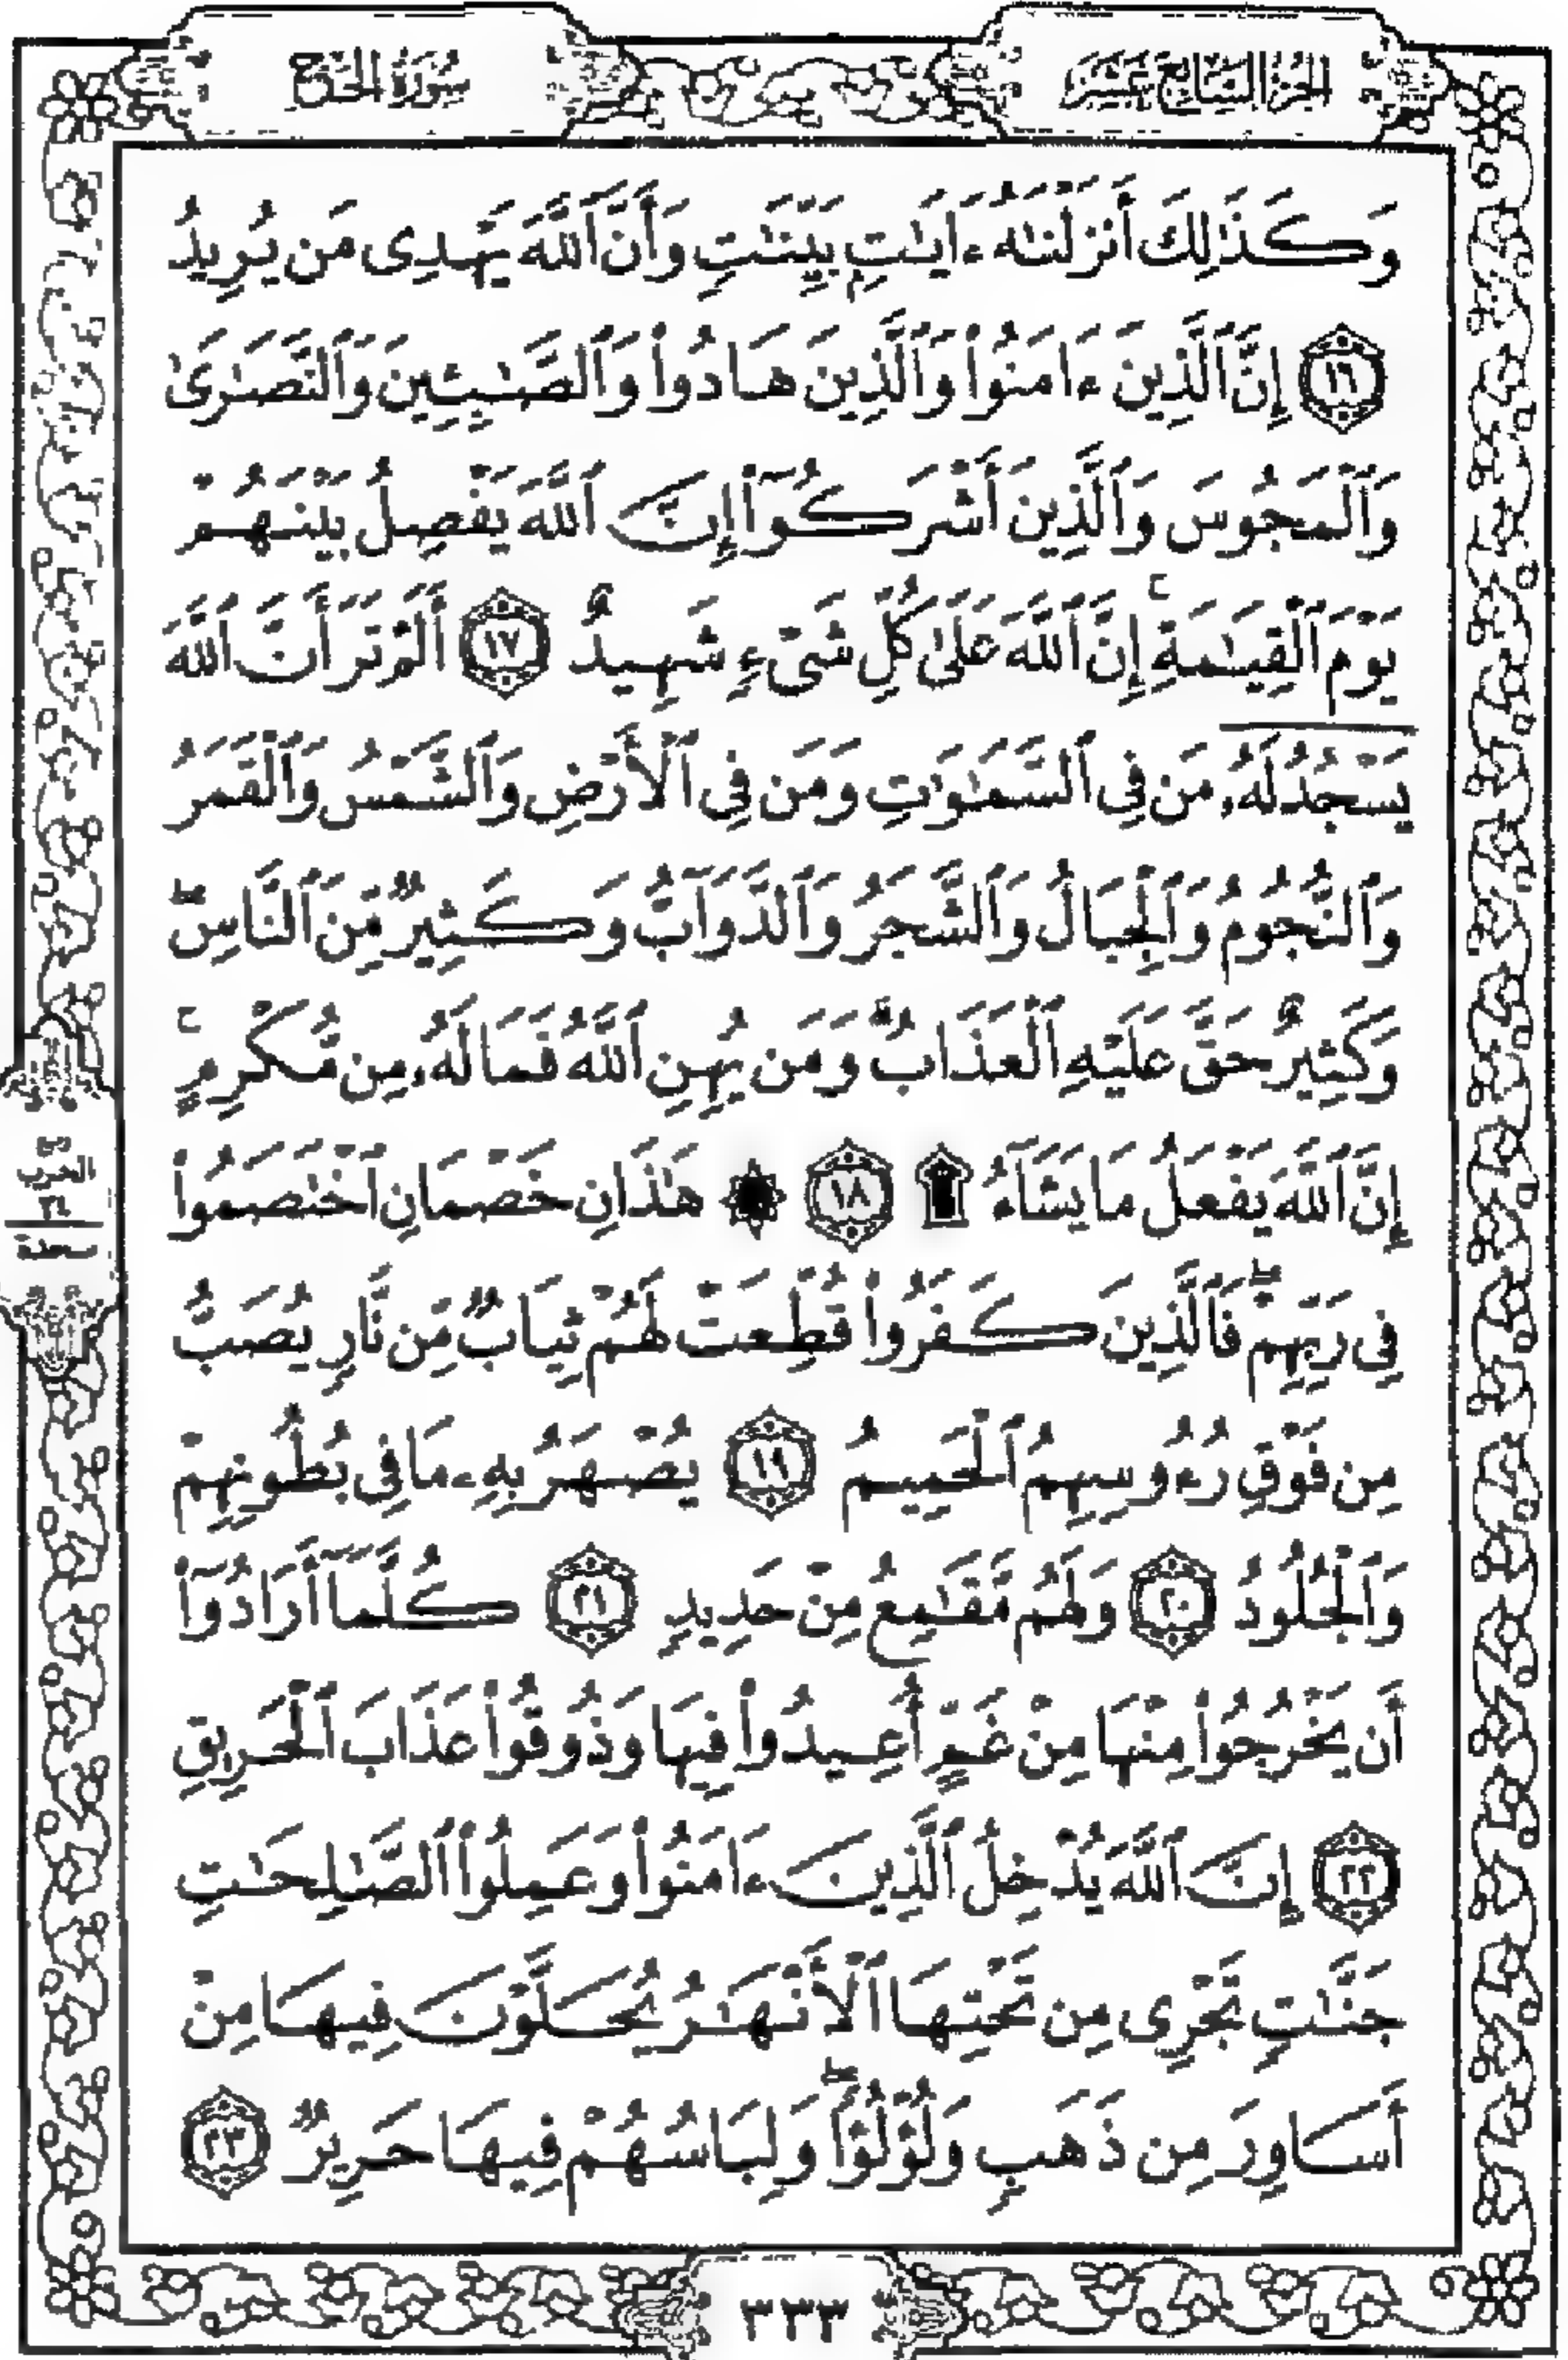 الجزء السابع عشر
سورة الحج
وَكَذَٰلِكَ أَنزَلْنَٰهُ ءَايَٰتٍۭ بَيِّنَٰتٍ وَأَنَّ ٱللَّهَ يَهْدِى مَن يُرِيدُ
١٦ إِنَّ ٱلَّذِينَ ءَامَنُوا۟ وَٱلَّذِينَ هَادُوا۟ وَٱلصَّٰبِـِٔينَ وَٱلنَّصَٰرَىٰ
وَٱلْمَجُوسَ وَٱلَّذِينَ أَشْرَكُوٓا۟ إِنَّ ٱللَّهَ يَفْصِلُ بَيْنَهُمْ
يَوْمَ ٱلْقِيَٰمَةِ ۚ إِنَّ ٱللَّهَ عَلَىٰ كُلِّ شَىْءٍ شَهِيدٌ ١٧ أَلَمْ تَرَ أَنَّ ٱللَّهَ
يَسْجُدُ لَهُۥ مَن فِى ٱلسَّمَٰوَٰتِ وَمَن فِى ٱلْأَرْضِ وَٱلشَّمْسُ وَٱلْقَمَرُ
وَٱلنُّجُومُ وَٱلْجِبَالُ وَٱلشَّجَرُ وَٱلدَّوَآبُّ وَكَثِيرٌ مِّنَ ٱلنَّاسِ ۖ
وَكَثِيرٌ حَقَّ عَلَيْهِ ٱلْعَذَابُ ۗ وَمَن يُهِنِ ٱللَّهُ فَمَا لَهُۥ مِن مُّكْرِمٍ ۚ
إِنَّ ٱللَّهَ يَفْعَلُ مَا يَشَآءُ ۩ ١٨ ۞ هَٰذَانِ خَصْمَانِ ٱخْتَصَمُوا۟
فِى رَبِّهِمْ ۖ فَٱلَّذِينَ كَفَرُوا۟ قُطِّعَتْ لَهُمْ ثِيَابٌ مِّن نَّارٍ يُصَبُّ
مِن فَوْقِ رُءُوسِهِمُ ٱلْحَمِيمُ ١٩ يُصْهَرُ بِهِۦ مَا فِى بُطُونِهِمْ
وَٱلْجُلُودُ ٢٠ وَلَهُم مَّقَٰمِعُ مِنْ حَدِيدٍ ٢١ كُلَّمَآ أَرَادُوٓا۟
أَن يَخْرُجُوا۟ مِنْهَا مِنْ غَمٍّ أُعِيدُوا۟ فِيهَا وَذُوقُوا۟ عَذَابَ ٱلْحَرِيقِ
٢٢ إِنَّ ٱللَّهَ يُدْخِلُ ٱلَّذِينَ ءَامَنُوا۟ وَعَمِلُوا۟ ٱلصَّٰلِحَٰتِ
جَنَّٰتٍ تَجْرِى مِن تَحْتِهَا ٱلْأَنْهَٰرُ يُحَلَّوْنَ فِيهَا مِنْ
أَسَاوِرَ مِن ذَهَبٍ وَلُؤْلُؤًا ۖ وَلِبَاسُهُمْ فِيهَا حَرِيرٌ ٢٣
٣٣٣